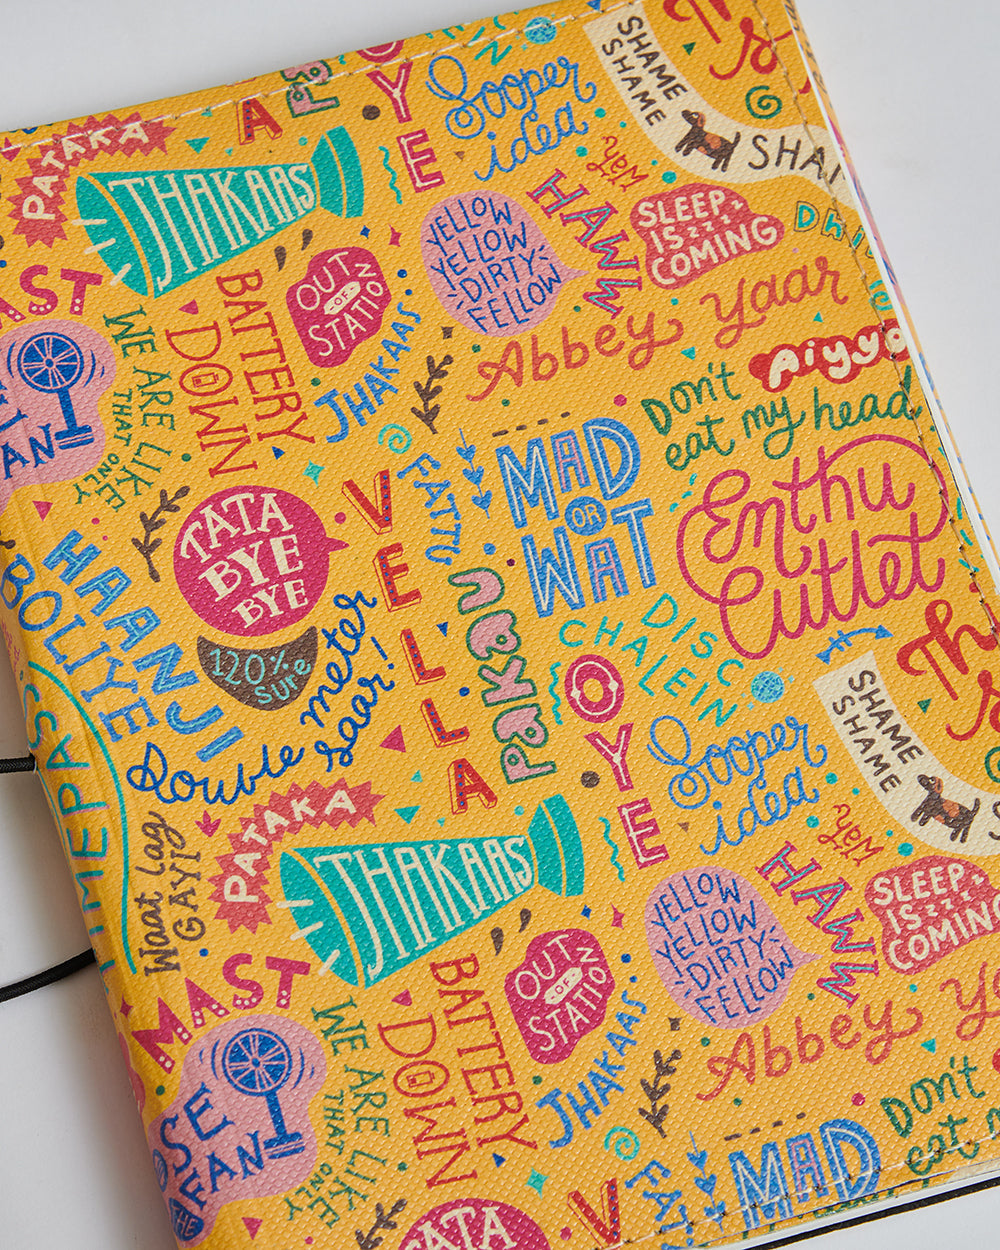 PATAKA
A
Pak
OYE
Sooper
idea
DISC
CHALEIN
SHAME
SHAME
SHAM
Th
s
THAKAAS
YELLOW
YELLOW
YELLOW
DIRTY
FELLOW
HAWW
Wah
SLEEP
IS zzz
COMING
Dhi
MAST
BATTERY
DOWN
OUT
OF
STATION
JHAKAAS
Abbey Yaar
Aiyyo
FAN
WE ARE LIKE
THAT ONLY
Don't
eat my head
TATA
BYE
BYE
VELLA
FATTU
MAD
OR
WAT
Enthu
Cutlet
HAANJI
BOLIYE
120%
sure
Double meter
saar!
Pakau
OYE
DISC
CHALEIN
Th
s
SHAME
SHAME
S
TIMEPASS
Sooper
idea
Waat lag
GAYI
PATAKA
THAKAAS
YELLOW
YELLOW
YELLOW
DIRTY
FELLOW
HAWW
Wah
SLEEP
IS zzz
COMING
MAST
BATTERY
DOWN
OUT
OF
STATION
JHAKAAS
Abbey Y
USE
THE
FAN
WE ARE LIKE
THAT ONLY
Don't
eat
TATA
BYE
V
FATTU
MAD